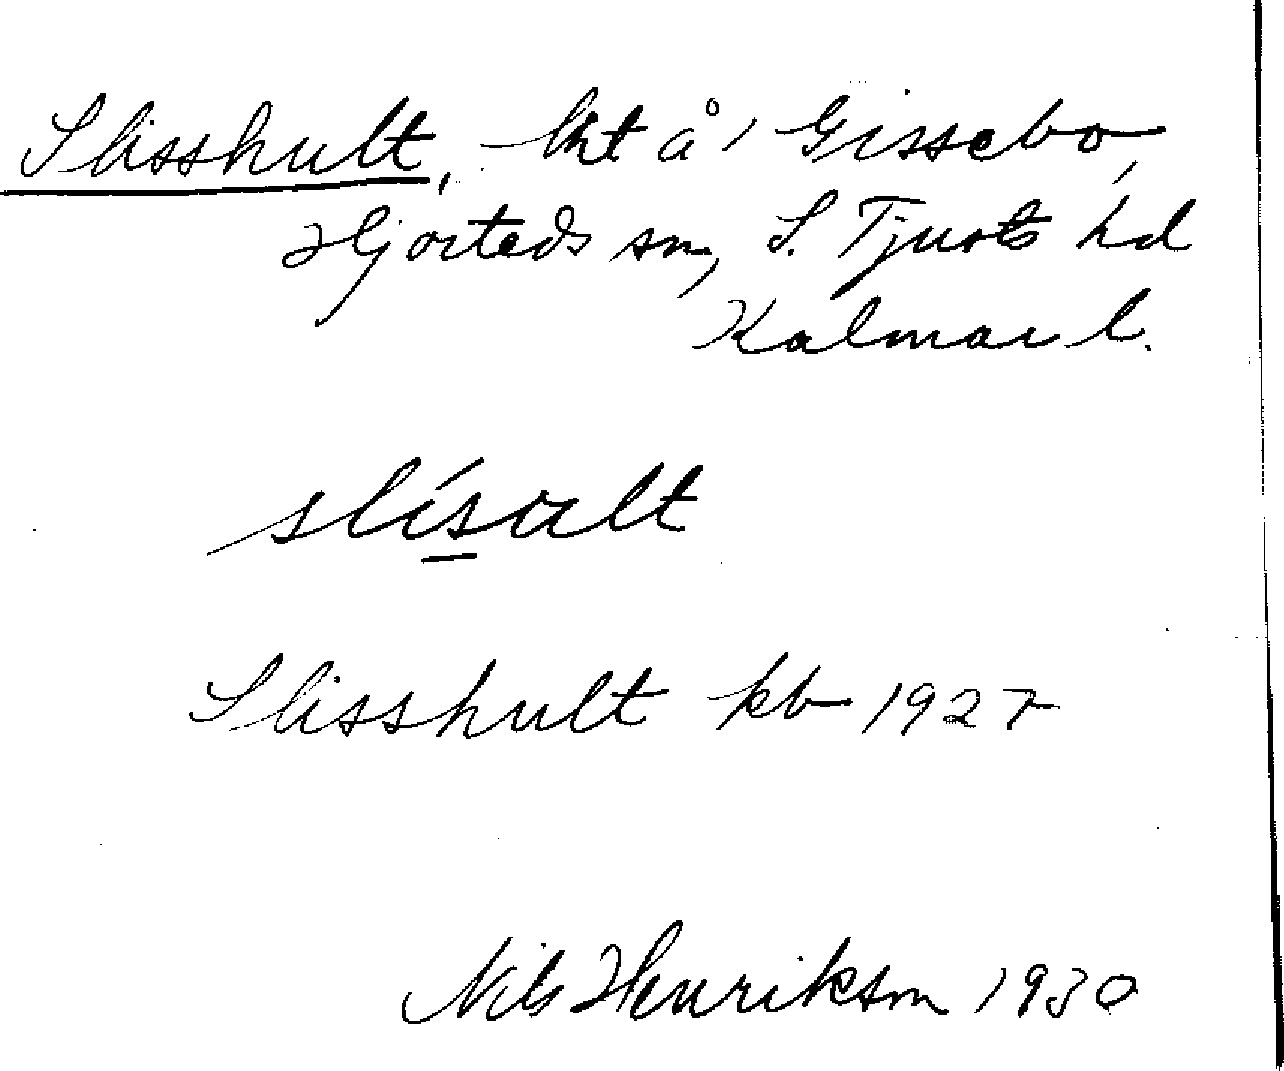 Slisshult, lht å Gissebo,
Hjorteds sn, S. Tjusts hd
Kalmar l.
slísult
Slisshult kb 1927
Nils Henrikson 1930